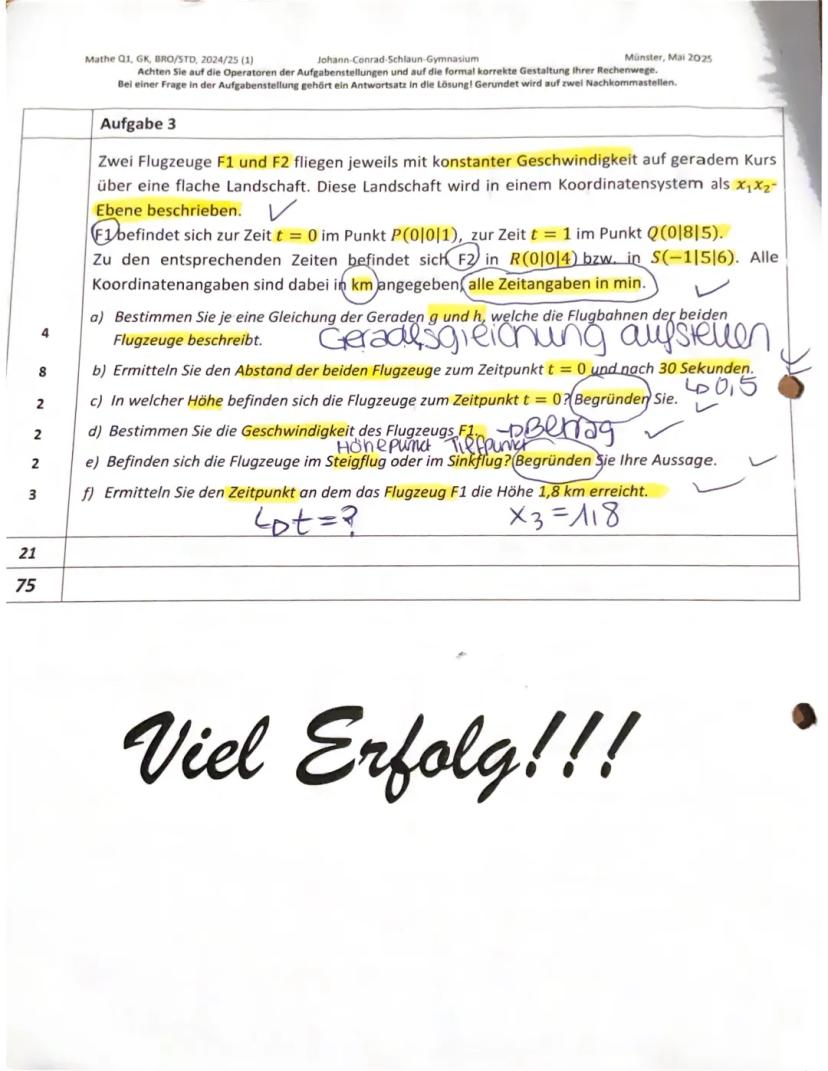 Mathe Q1, GK, BRO/STD, 2024/25 (1) Johann-Conrad-Schlaun-Gymnasium Münster, Mai 2025
Achten Sie auf die Operatoren der Aufgabenstellungen und auf die formal korrekte Gestaltung Ihrer Rechenwege.
Bei einer Frage in der Aufgabenstellung gehört ein Antwortsatz in die Lösung! Gerundet wird auf zwei Nachkommastellen.
Aufgabe 3
Zwei Flugzeuge F1 und F2 fliegen jeweils mit konstanter Geschwindigkeit auf geradem Kurs
über eine flache Landschaft. Diese Landschaft wird in einem Koordinatensystem als x₁x₂-
Ebene beschrieben.
F1 befindet sich zur Zeit t = 0 im Punkt P(0|0|1), zur Zeit t = 1 im Punkt Q(0|8|5).
Zu den entsprechenden Zeiten befindet sich F2 in R(0|0|4) bzw. in S(−1|5|6). Alle
Koordinatenangaben sind dabei in km angegeben, alle Zeitangaben in min.
a) Bestimmen Sie je eine Gleichung der Geraden g und h, welche die Flugbahnen der beiden
4 Flugzeuge beschreibt. Geradesgleichung aufstellen
8 b) Ermitteln Sie den Abstand der beiden Flugzeuge zum Zeitpunkt t = 0 und nach 30 Sekunden.
↳ 0,5
2 c) In welcher Höhe befinden sich die Flugzeuge zum Zeitpunkt t = 0? Begründen Sie.
2 d) Bestimmen Sie die Geschwindigkeit des Flugzeugs F1. → Betrag
Höhepunkt Tiefpunkt
2 e) Befinden sich die Flugzeuge im Steigflug oder im Sinkflug? Begründen Sie Ihre Aussage.
3 f) Ermitteln Sie den Zeitpunkt an dem das Flugzeug F1 die Höhe 1,8 km erreicht.
↳ t = ? x₃ = 1,8
21
75
Viel Erfolg!!!